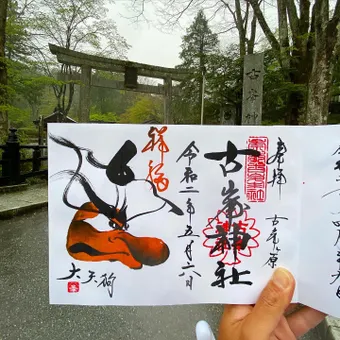 古峯神
奉拝
古峯ヶ原
古峯神社
令和二年五月六日
祥福
大天狗